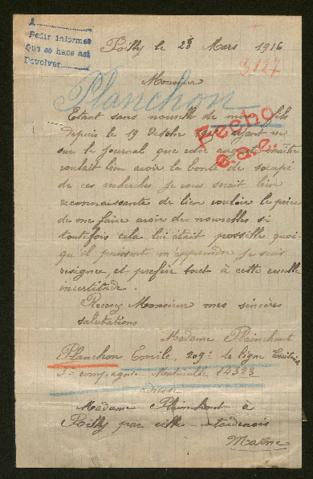 A
Pedir informes
Que se hace asi
Devolver
Poilly le 28 Mars 1916
3127
Monsieur
Planchon
Etant sans nouvelle de mon fils
depuis le 19 Octobre ayant vu
sur le journal que votre
voulait bien avoir la bonté de socupé
de ces recherches je vous serait bien
reconnaissante de bien vouloir la peine
de me faire avoir des nouvelles si
toutefois cela lui était possible quoi
qu'il puissent m'apprendre je suis
résigné, et préfère tout à cette cruelle
incertitude.
Recevez Monsieur mes sincères
salutations
Fecho
Madame Plainchont
Planchon Emile, 209e de ligne
compagnie Matricule 14323
Madame Plainchont à
Poilly par ville tardenois
Marne